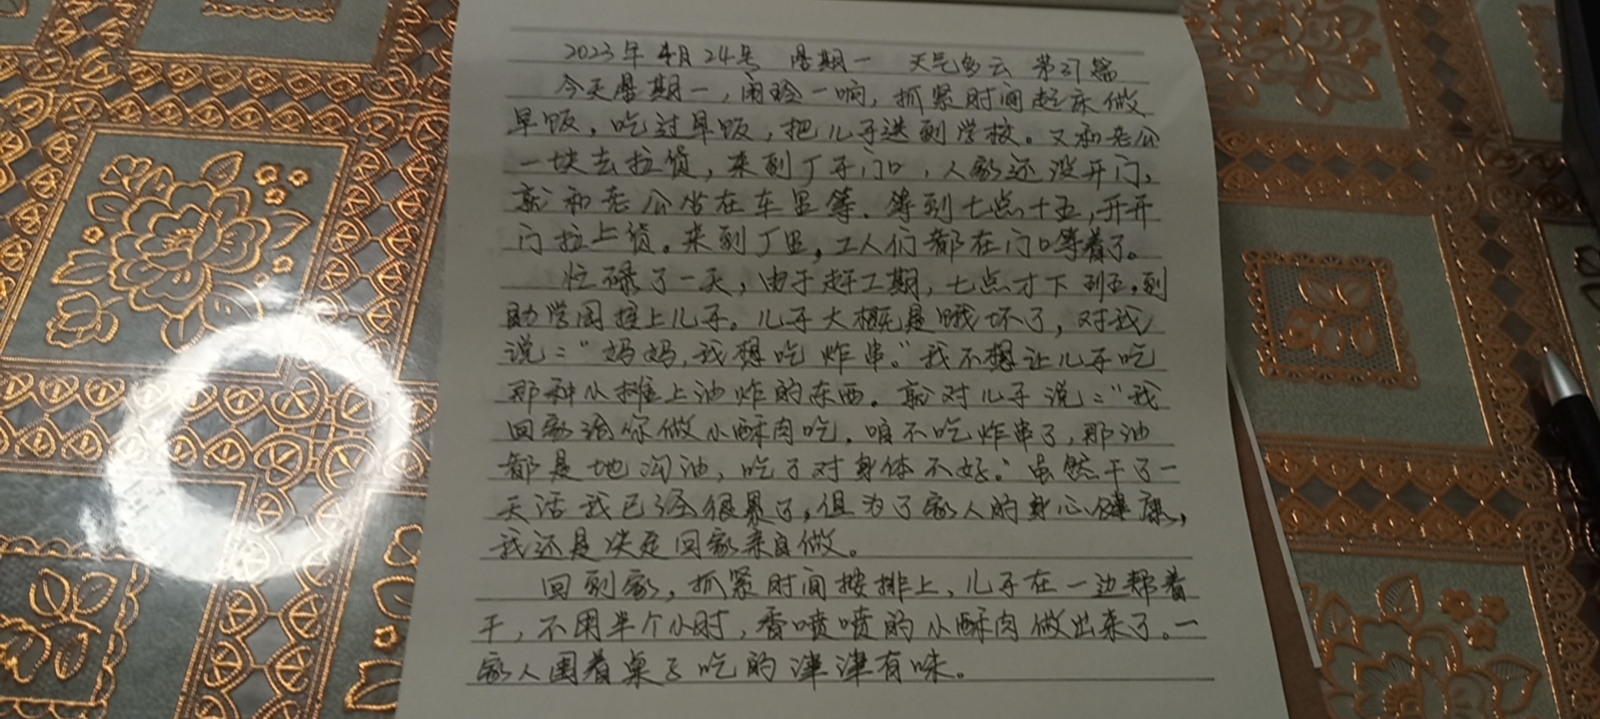 2023年4月24号 星期一 天气多云 第31篇
今天星期一，闹铃一响，抓紧时间起床做
早饭。吃过早饭，把儿子送到学校。又和老公
一块去拉货，来到厂子门口，人家还没开门，
就和老公坐在车里等。等到七点十五，开开
门拉上货。来到厂里，工人们都在门口等着了。
忙碌了一天，由于赶工期，七点才下班。到
助学园接上儿子。儿子大概是饿坏了，对我
说："妈妈，我想吃炸串。"我不想让儿子吃
那种小摊上油炸的东西。就对儿子说："我
回家给你做小酥肉吃，咱不吃炸串了，那油
都是地沟油，吃了对身体不好。"虽然干了一
天活我已经很累了，但为了家人的身心健康，
我还是决定回家亲自做。
回到家，抓紧时间按排上，儿子在一边帮着
干，不用半个小时，香喷喷的小酥肉做出来了。一
家人围着桌子吃的津津有味。